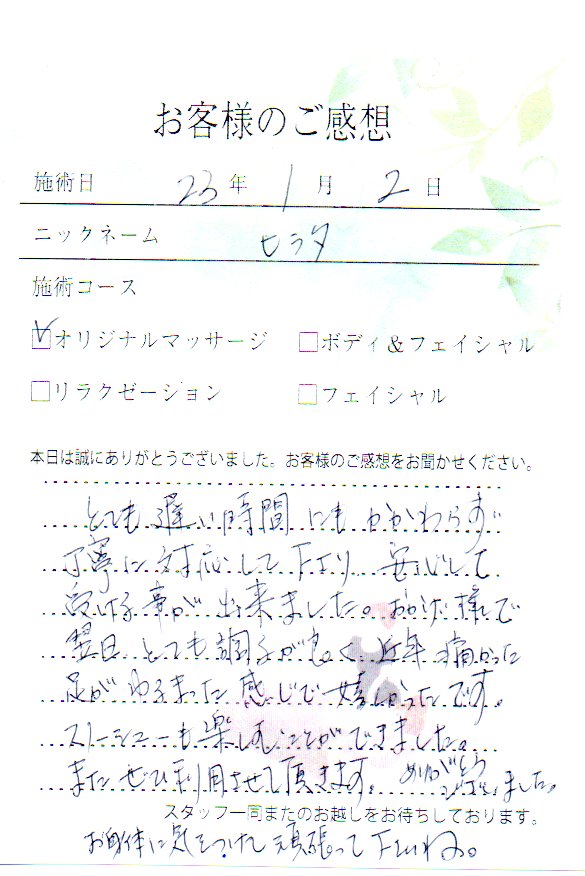 お客様のご感想
施術日 23年 1月 2日
ニックネーム ヒラタ
施術コース
☑オリジナルマッサージ □ボディ&フェイシャル
□リラクゼーション □フェイシャル
本日は誠にありがとうございました。お客様のご感想をお聞かせください。
とても遅い時間にもかかわらず
丁寧に対応して下さり 安心して
受ける事が出来ました。おかげ様で
翌日とても調子が良く 近年痛かった
足が 感じで嬉しかったです。
も楽しむことができました。
またぜひ利用させて頂きます。ありがとう
ございました。
スタッフ一同またのお越しをお待ちしております。
お身体に気をつけて頑張って下さいね。